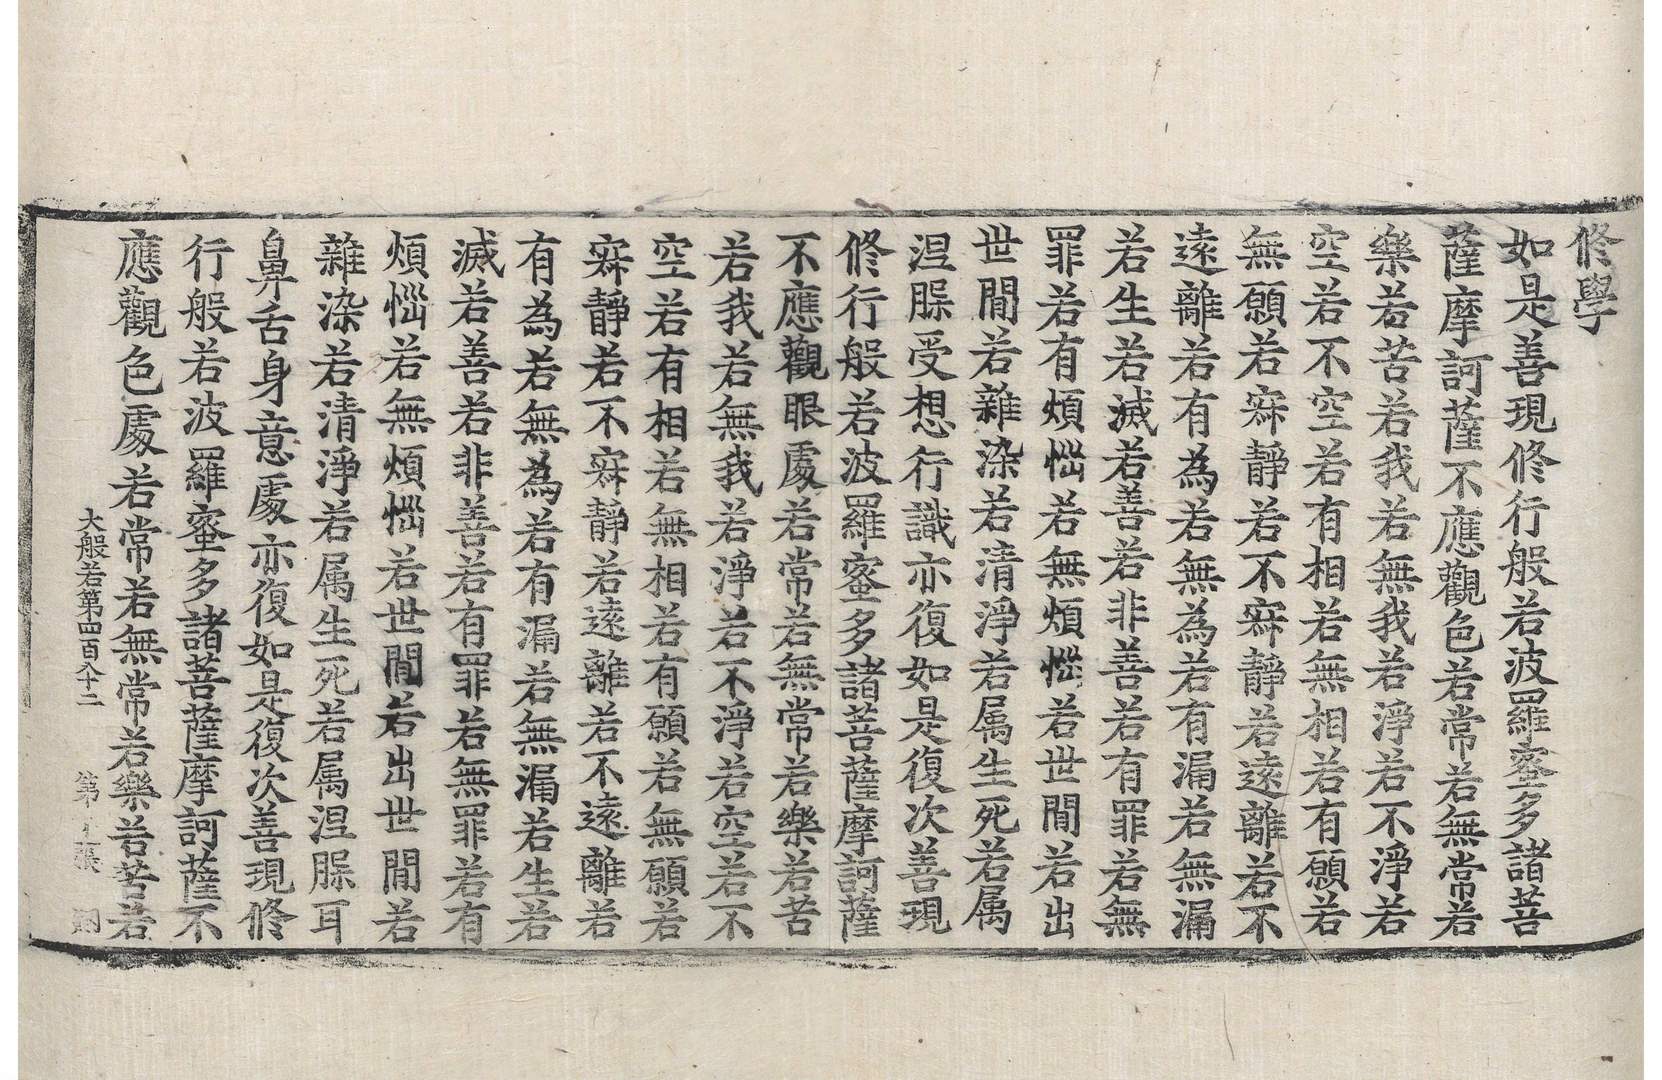 修學
如是善現修行般若波羅蜜多諸菩
薩摩訶薩不應觀色若常若無常若
樂若苦若我若無我若淨若不淨若
空若不空若有相若無相若有願若
無願若寂靜若不寂靜若遠離若不
遠離若有為若無為若有漏若無漏
若生若滅若善若非善若有罪若無
罪若有煩惱若無煩惱若世閒若出
世閒若雜染若清淨若属生死若属
涅脲受想行識亦復如是復次善現
修行般若波羅蜜多諸菩薩摩訶薩
不應觀眼處若常若無常若樂若苦
若我若無我若淨若不淨若空若不
空若有相若無相若有願若無願若
寂靜若不寂靜若遠離若不遠離若
有為若無為若有漏若無漏若生若
滅若善若非善若有罪若無罪若有
煩惱若無煩惱若世閒若出世閒若
雜染若清淨若属生死若属涅脲耳
鼻舌身意處亦復如是復次善現修
行般若波羅蜜多諸菩薩摩訶薩不
應觀色處若常若無常若樂若苦若
大般若第四百八十二 第 張